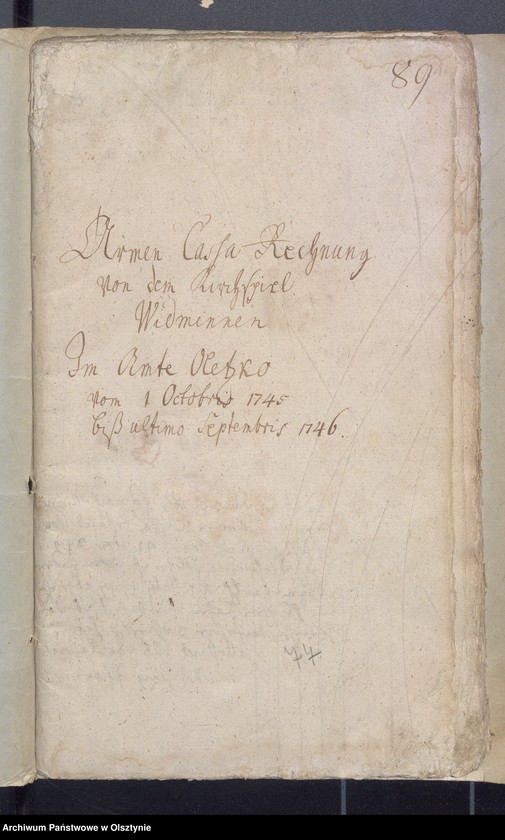 89
Armen Cassa Rechnung
von dem Kirchspiel
Widminnen
Im Amte Oletzko
vom 1 Octobris 1745
biß ultimo Septembris 1746.
74
Archiwum Państwowe w Olsztynie